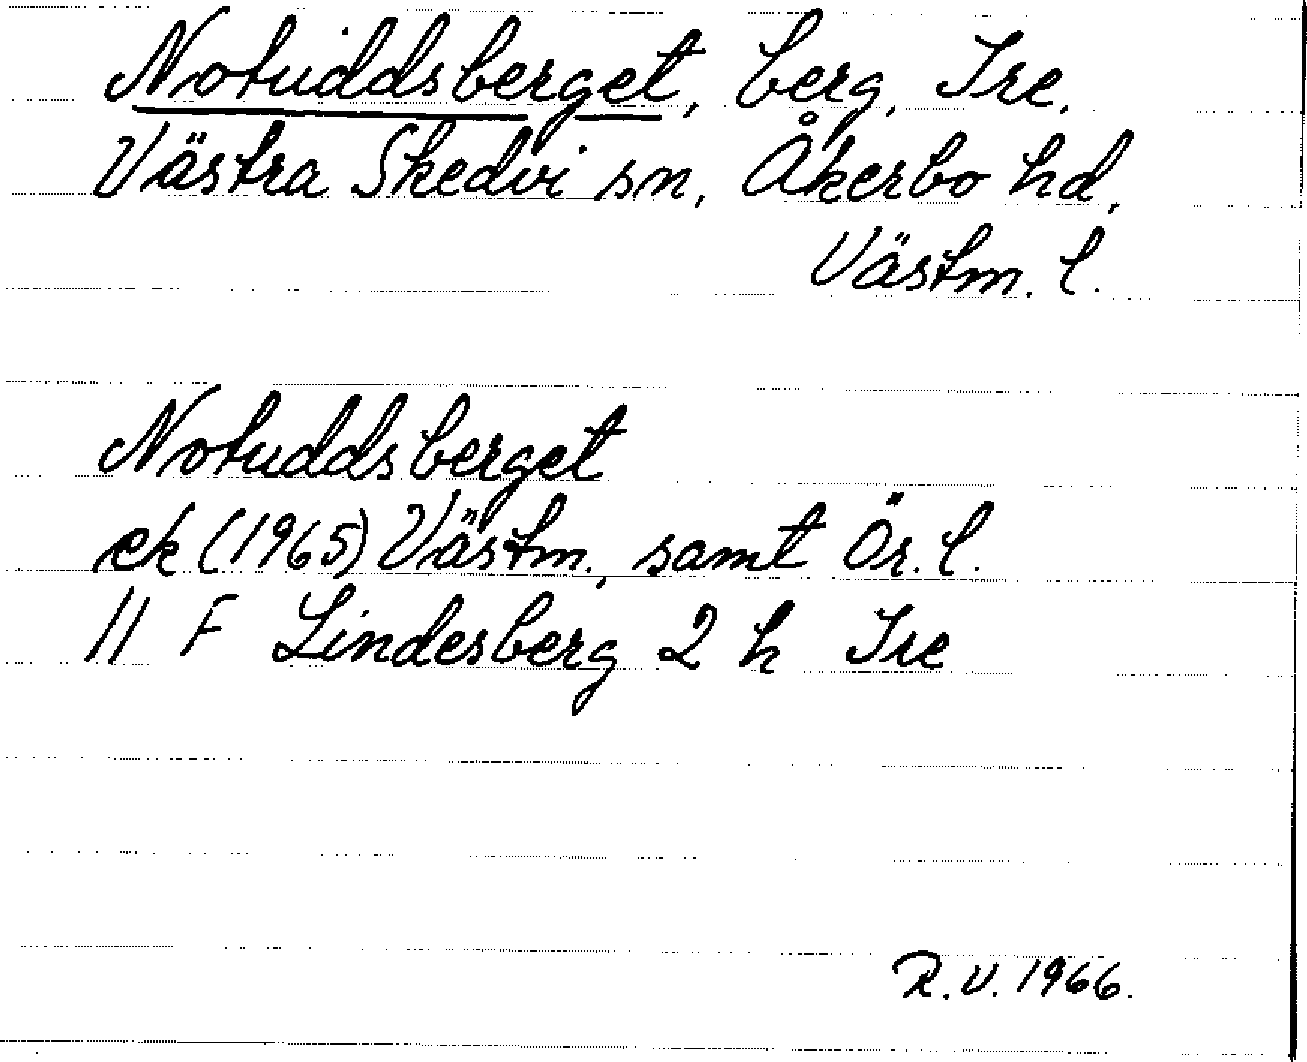 Notuddsberget, berg, Tre,
Västra Skedvi sn, Åkerbo hd,
Västm. l.
Notuddsberget
ek (1965) Västm., samt Ör. l.
11 F Lindesberg 2 h Tre
R.V. 1966.